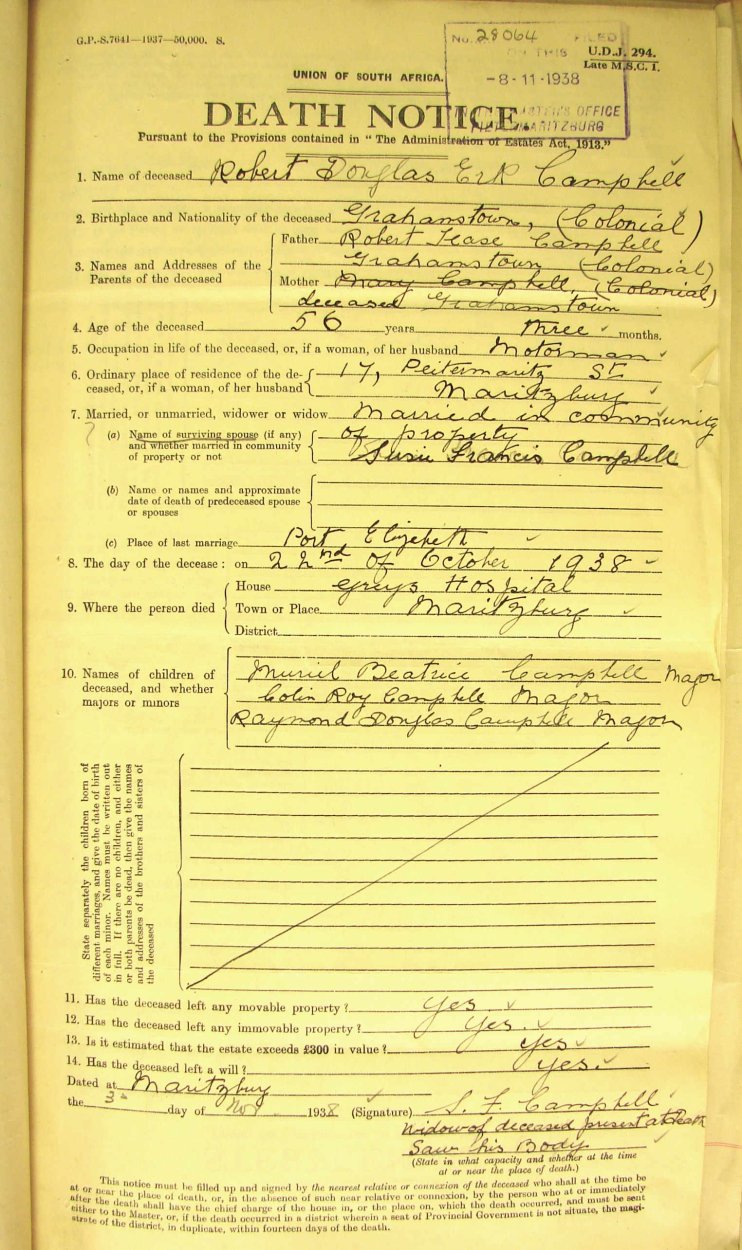 G.P.-S.7641—1937—50,000. S.
No. 28064 FILED
ON THIS
U.D.J. 294.
Late M.S.C. 1.
-8-11-1938
UNION OF SOUTH AFRICA.
MASTER'S OFFICE
PIETERMARITZBURG
DEATH NOTICE.
Pursuant to the Provisions contained in "The Administration of Estates Act, 1913."
1. Name of deceased Robert Douglas Campbell
2. Birthplace and Nationality of the deceased Grahamstown, (Colonial)
3. Names and Addresses of the Parents of the deceased
Father Robert Campbell
Grahamstown (Colonial)
Mother Mary Campbell, (Colonial)
deceased Grahamstown
4. Age of the deceased 56 years three months.
5. Occupation in life of the deceased, or, if a woman, of her husband Motorman
6. Ordinary place of residence of the deceased, or, if a woman, of her husband
17, Peitermaritz St.
Maritzburg
7. Married, or unmarried, widower or widow Married in community
?
(a) Name of surviving spouse (if any) and whether married in community of property or not
of property
Susie Francis Campbell
(b) Name or names and approximate date of death of predeceased spouse or spouses
(c) Place of last marriage Port Elizabeth
8. The day of the decease: on 22nd of October 1938
9. Where the person died
House Greys Hospital
Town or Place Maritzburg
District
10. Names of children of deceased, and whether majors or minors
Muriel Beatrice Campbell Major
Colin Roy Campbell Major
Raymond Douglas Campbell Major
State separately the children born of
different marriages, and give the date of birth
of each minor. Names must be written out
in full. If there are no children, and either
or both parents be dead, then give the names
and addresses of the brothers and sisters of
the deceased
11. Has the deceased left any movable property? Yes
12. Has the deceased left any immovable property? Yes.
13. Is it estimated that the estate exceeds £300 in value? Yes
14. Has the deceased left a will? Yes.
Dated at Maritzburg
the 3 day of Nov 1938 (Signature) S. F. Campbell
Widow of deceased present at Death
Saw his Body
(State in what capacity and whether at the time
at or near the place of death.)
This notice must be filled up and signed by the nearest relative or connexion of the deceased who shall at the time be
at or near the place of death, or, in the absence of such near relative or connexion, by the person who at or immediately
after the death shall have the chief charge of the house in, or the place on, which the death occurred, and must be sent
either to the Master, or, if the death occurred in a district wherein a seat of Provincial Government is not situate, the magi-
strate of the district, in duplicate, within fourteen days of the death.